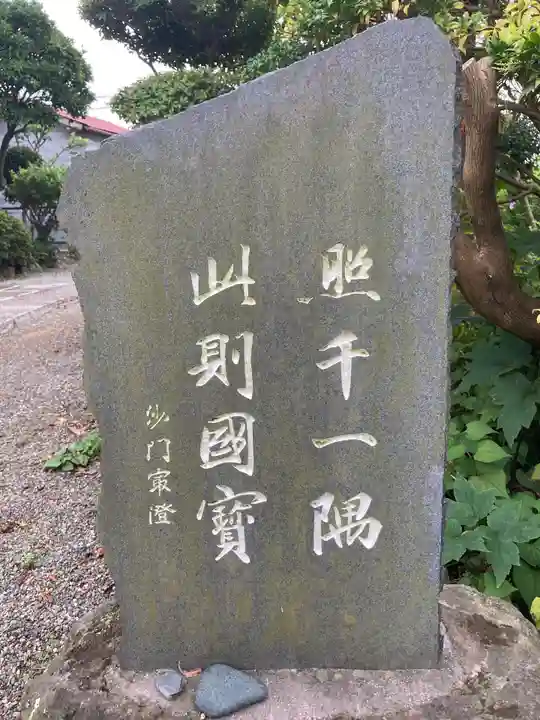 照千一隅
此則國寶
沙門最澄